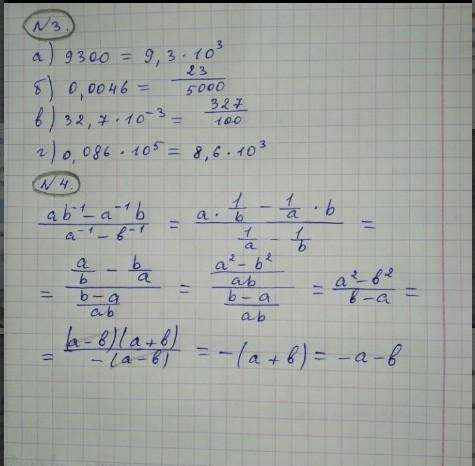 №3.
а) 9300 = 9,3 · 10³
б) 0,0046 = 23/5000
в) 32,7 · 10⁻³ = 327/100
г) 0,086 · 10⁵ = 8,6 · 10³
№4.
(ab⁻¹ − a⁻¹b)/(a⁻¹ − b⁻¹) = (a · 1/b − 1/a · b)/(1/a − 1/b) =
= (a/b − b/a)/((b−a)/ab) = ((a² − b²)/ab)/((b−a)/ab) = (a² − b²)/(b−a) =
= (a−b)(a+b)/−(a−b) = −(a+b) = −a−b